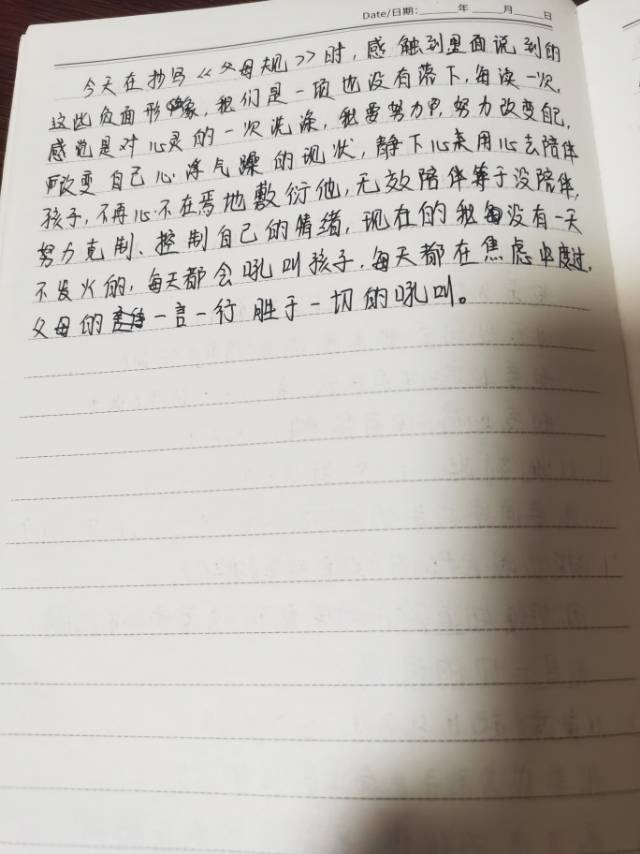 Date/日期:______年____月____日
今天在抄写《父母规》时,感触到里面说到的
这些负面形象,我们是一项也没有落下,每读一次,
感觉是对心灵的一次洗涤,我要努力,努力改变自己,
改变自己心浮气躁的现状,静下心来用心去陪伴
孩子,不再心不在焉地敷衍他,无效陪伴等于没陪伴,
努力克制、控制自己的情绪,现在的我没有一天
不发火的,每天都会吼叫孩子,每天都在焦虑中度过,
父母的一言一行胜于一切的吼叫。